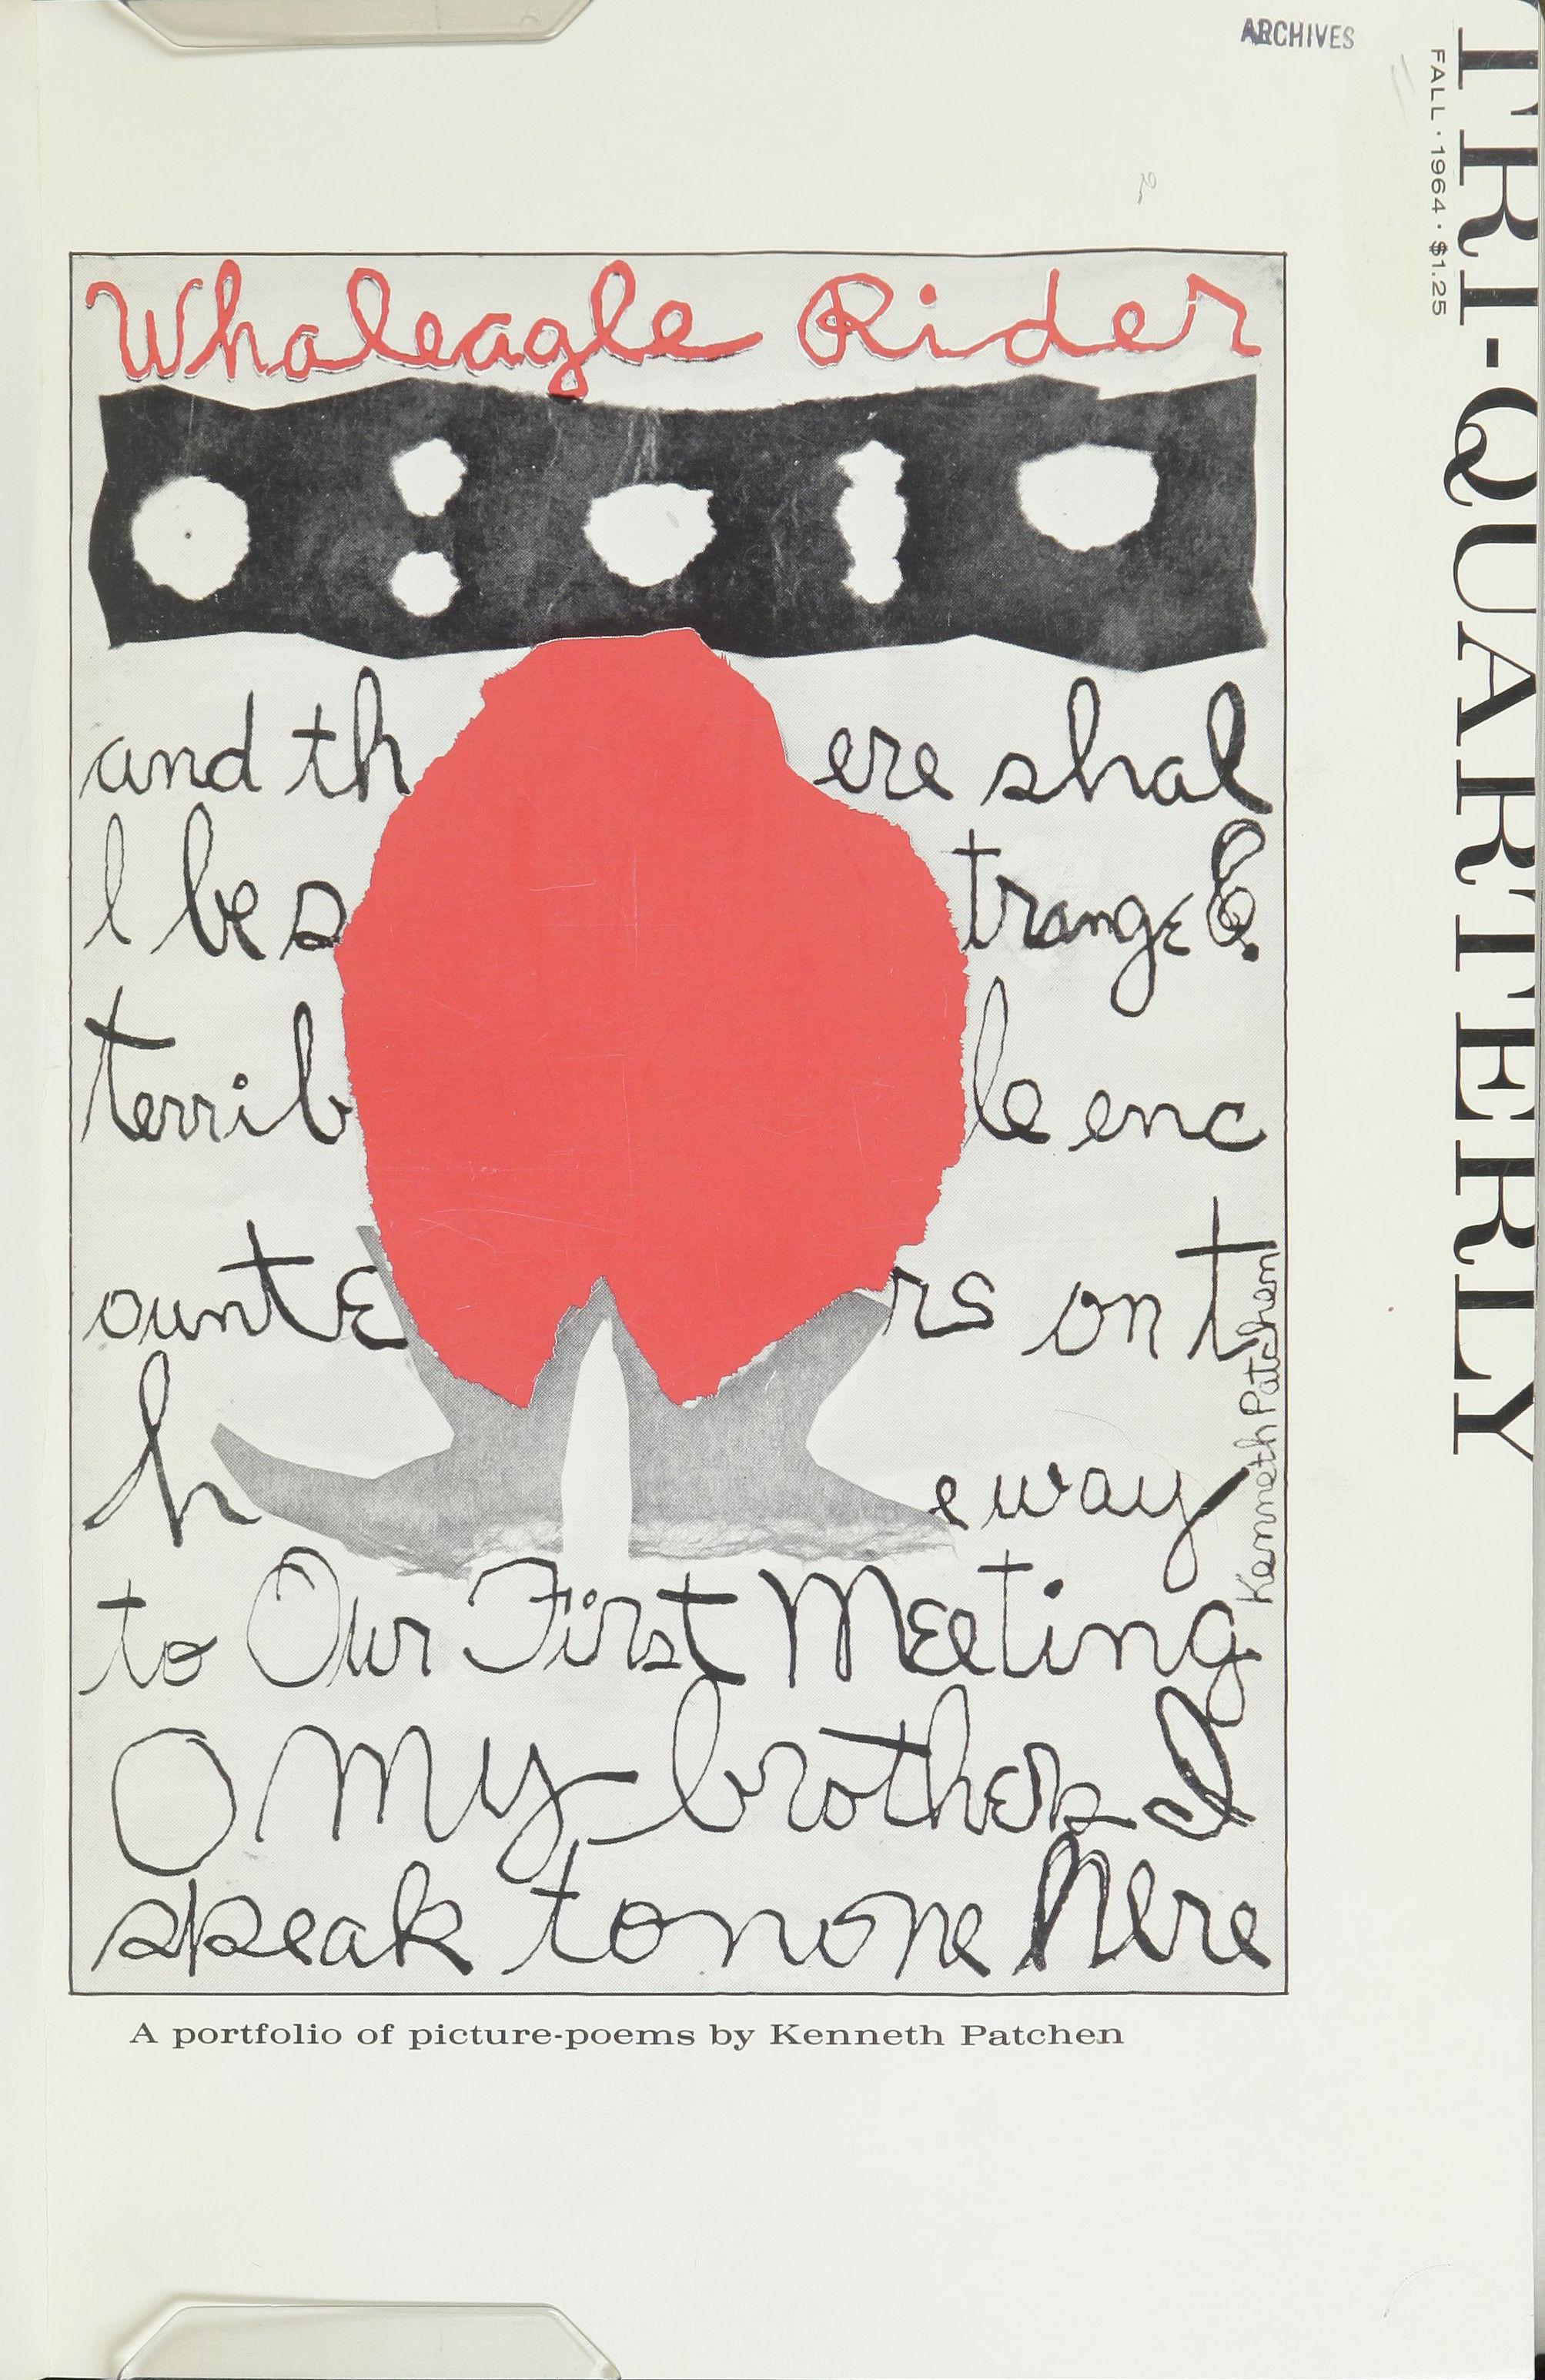 ARCHIVES
TRI-QUARTERLY
FALL · 1964 · $1.25
Whaleagle Rider
and th ere shal
l be s trange &
terrib le enc
ounte rs on t
h e way
to Our First Meeting
O my brothers I
speak to none here
Kenneth Patchen
A portfolio of picture-poems by Kenneth Patchen